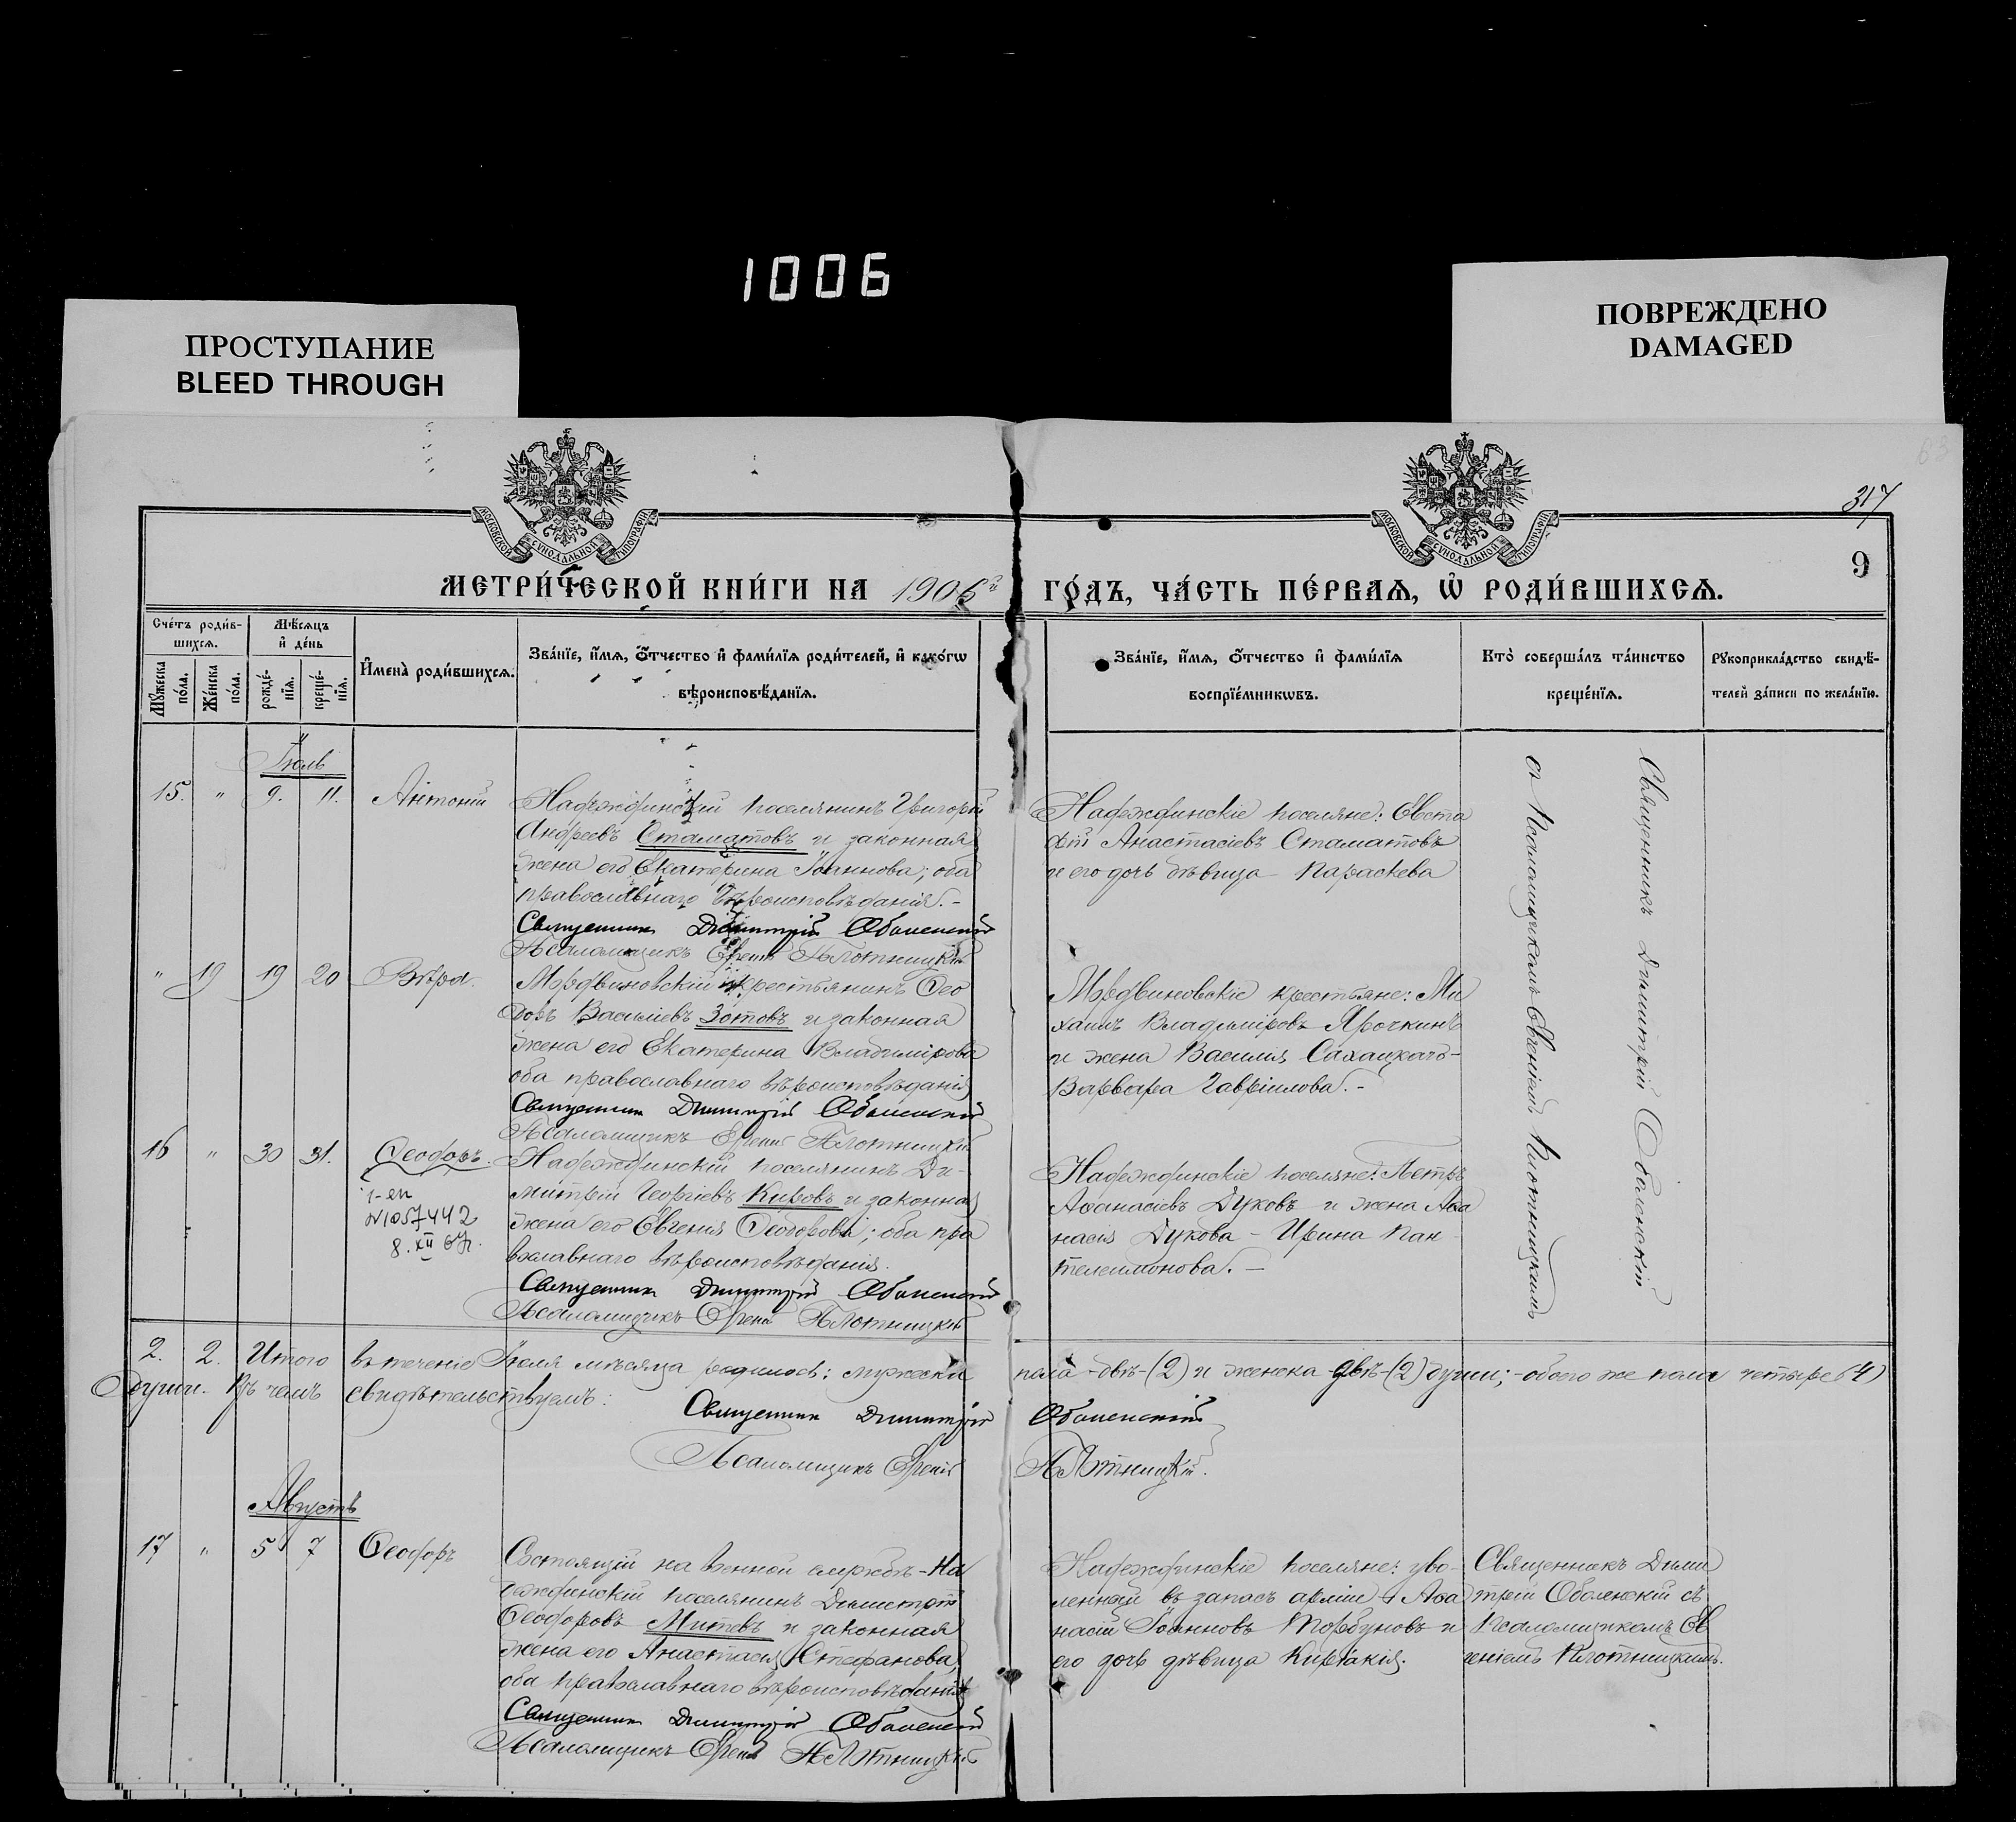 1006
ПРОСТУПАНИЕ
BLEED THROUGH
ПОВРЕЖДЕНО
DAMAGED
317
9
МОСКОВСКОЙ СѴНОДАЛЬНОЙ ТИПОГРАФІИ
МОСКОВСКОЙ СѴНОДАЛЬНОЙ ТИПОГРАФІИ
МЕТРИ́ЧЕСКОЙ КНИ́ГИ НА 1906й ГО́ДЪ, ЧА́СТЬ ПЕ́РВАѦ, Ѡ҆ РОДИ́ВШИХСѦ.
Сче́тъ роди́в-
шихсѧ.
Мѣ́сѧцъ
и҆ де́нь
Мꙋ́жеска по́ла.
Же́нска по́ла.
рожде́-нїѧ.
креще́-нїѧ.
И҆мена̀ роди́вшихсѧ.
Зва́нїе, и҆́мѧ, ѻ҆́тчество и҆ фами́лїѧ роди́телей, и҆ како́гѡ
вѣроисповѣ́данїѧ.
Зва́нїе, и҆́мѧ, ѻ҆́тчество и҆ фами́лїѧ
воспрїе́мникѡвъ.
Кто̀ соверша́лъ та́инство
креще́нїѧ.
Рꙋкоприкла́дство свидѣ́-
телей за́писи по жела́нїю.
Іюль
15. " 9. 11. Антоній
Надеждинскій поселянинъ Григорій
Андреевъ Стаматовъ и законная
жена его Екатерина Іоаннова; оба
православнаго вѣроисповѣданія.-
Священникъ Димитрій Оболенскій
Псаломщикъ Евгеній Плотницкій
Надеждинскіе поселяне: Евста
ѳій Анастасіевъ Стаматовъ
и его дочь дѣвица Параскева
Священникъ Димитрій Оболенскій
съ Псаломщикомъ Евгеніемъ Плотницкимъ
" 19 19 20 Вѣра.
Мордвиновскій крестьянинъ Ѳео
доръ Василіевъ Зотовъ и законная
жена его Екатерина Владимірова
оба православнаго вѣроисповѣданія
Священникъ Димитрій Оболенскій
Псаломщикъ Евгеній Плотницкій
Мордвиновскіе крестьяне: Ми
хаилъ Владиміровъ Ярочкинъ
и жена Василія
Варвара Гавріилова.-
16 " 30 31. Ѳеодоръ.
N1057442
8.XII
Надеждинскій поселянинъ Ди-
митрій Георгіевъ Кировъ и законная
жена его Евгенія Ѳеодорова; оба пра
вославнаго вѣроисповѣданія.
Священникъ Димитрій Оболенскій
Псаломщикъ Евгеній Плотницкій
Надеждинскіе поселяне: Петръ
Аѳанасіевъ Дуковъ и жена Аѳа
насія Дукова - Ирина Пан-
телеимонова.-
2. 2. Итого въ теченіе Іюля мѣсяца родилось: мужеска пола -двѣ-(2) и женска двѣ-(2) души; -обоего же пола четыре (4)
души. Въ чемъ свидѣтельствуемъ:
Священникъ Димитрій Оболенскій
Псаломщикъ Евгеній Плотницкій.
Августъ
17 " 5 7 Ѳеодоръ
Состоящій на военной службѣ - На
деждинскій поселянинъ Димитрій
Ѳеодоровъ Митевъ и законная
жена его Анастасія Стефанова,
оба православнаго вѣроисповѣданія
Священникъ Димитрій Оболенскій
Псаломщикъ Евгеній Плотницкій
Надеждинскіе поселяне: уво-
ленный въ запасъ арміи Аѳа
насій Іоанновъ Торбуновъ и
его дочь дѣвица Киріакія.
Священникъ Дими
трій Оболенскій съ
Псаломщикомъ Ев
геніемъ Плотницкимъ.